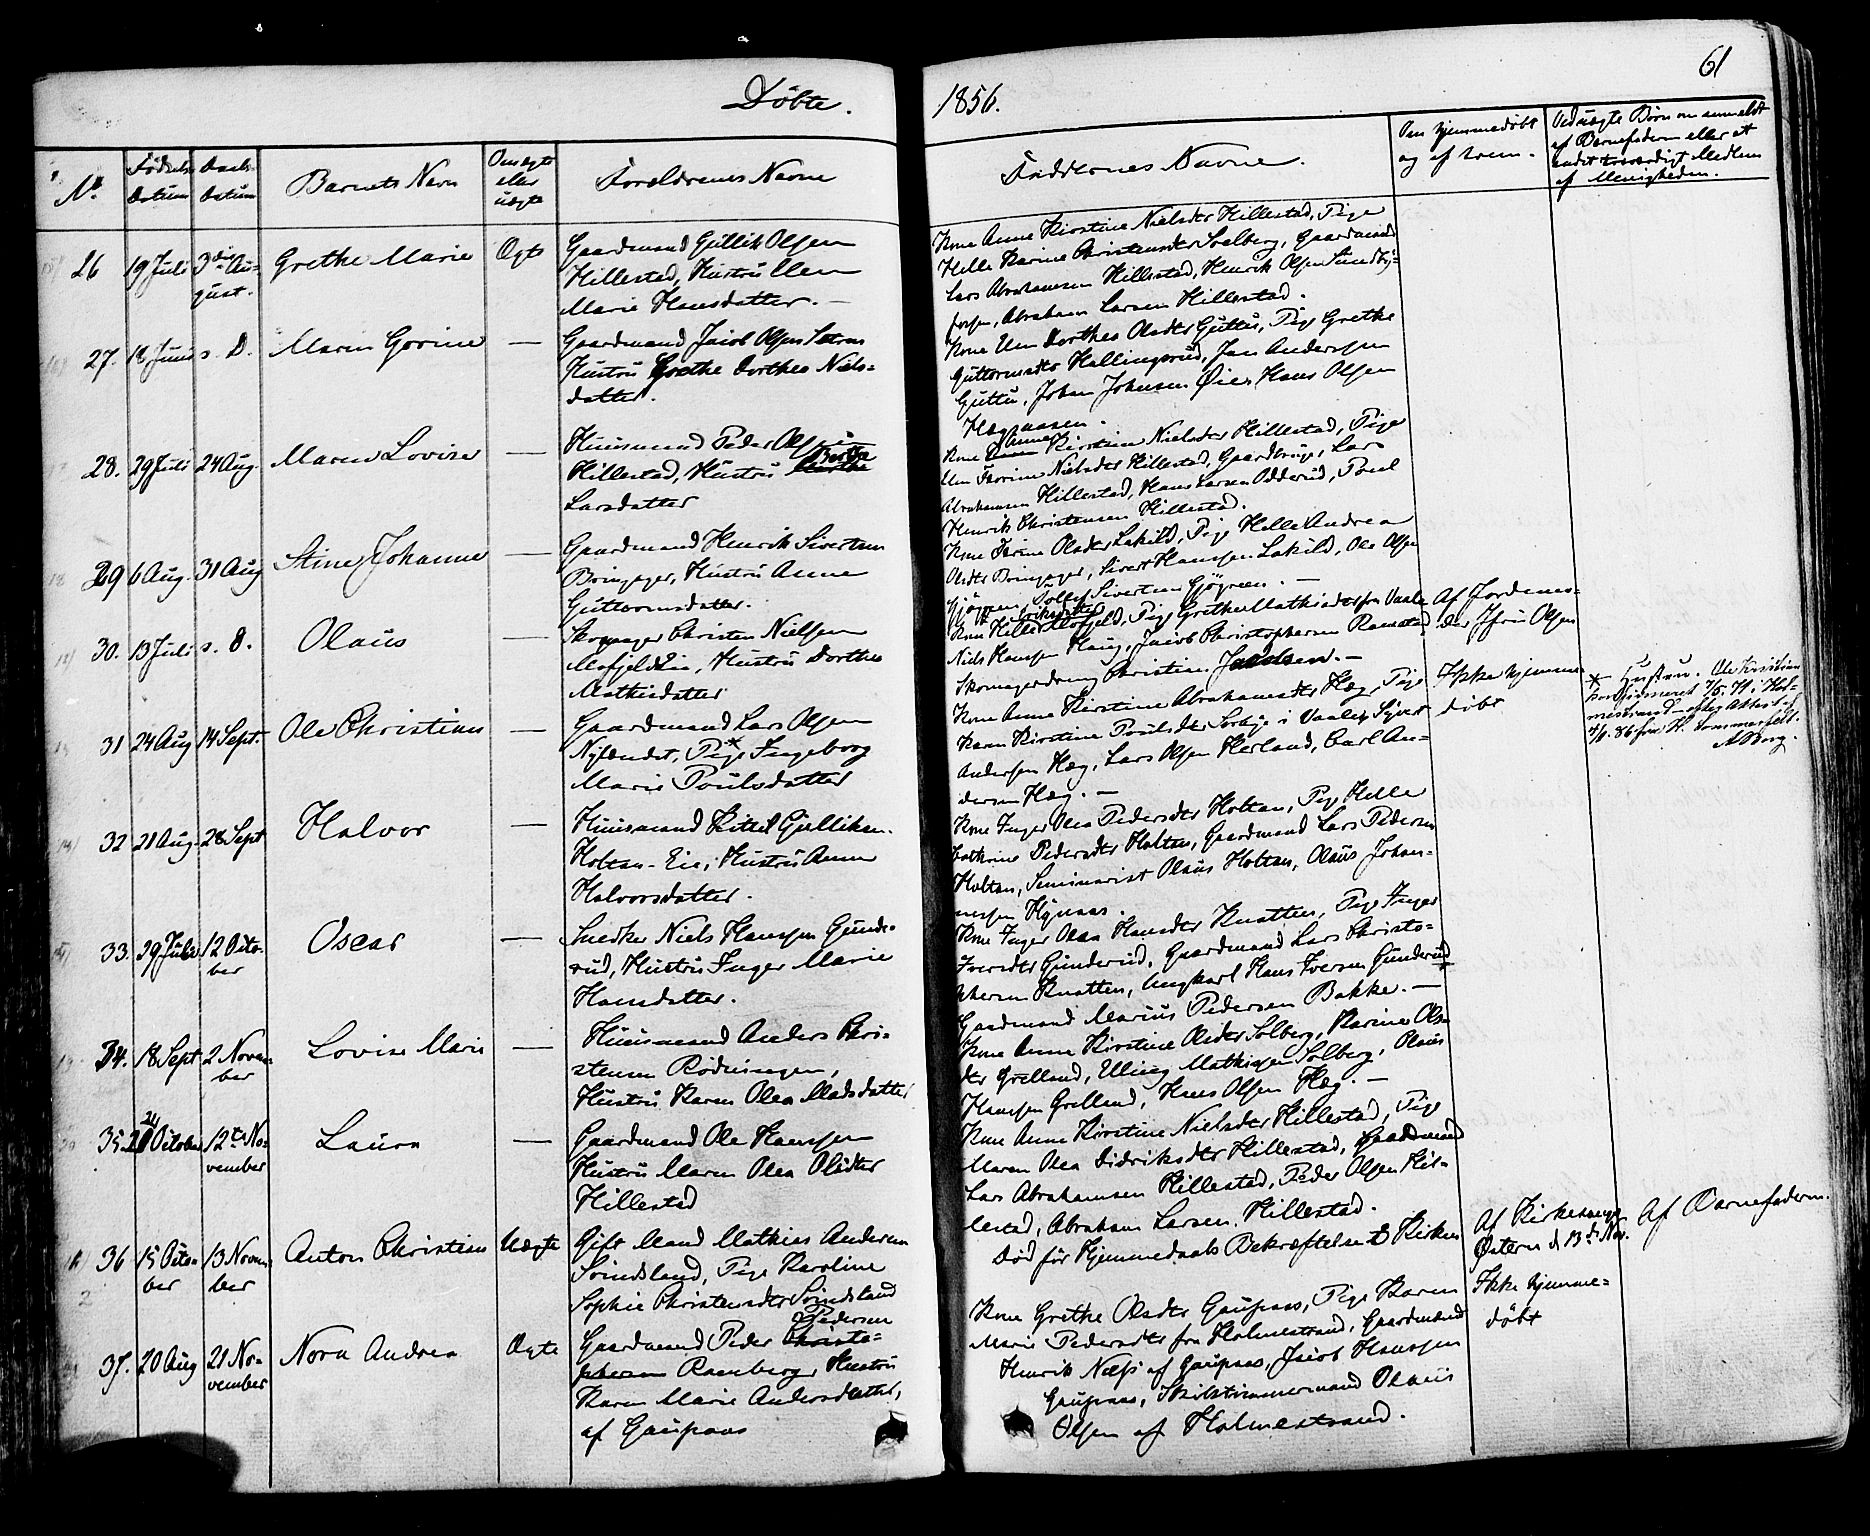 Döbte.
1856.
61
No.
Födsels-
Datum
Daabs-
Datum
Barnets Navn
Om ægte
eller
uægte
Forældrenes Navne
Faddernes Navne.
Om hjemmedöbt
og af hvem.
Ved uægte Børn om anmeldt
af Barnefaderen eller et
andet troværdigt Medlem
af Menigheden.
26
19 Juli
3die Au-
gust.
Grethe Marie
Ægte
Gaardmand Gullik Olsen
Hillestad, Hustru
Marie Hansdatter. —
Kone Anne Kirstine Nielsdtr Hillestad, Pige
Helle Karine Christensdtr Solberg, Gaardmænd
Lars Abrahamsen Hillestad, Henrik Olsen Sundby-
fossen, Abraham Larsen Hillestad.
27.
18 Juni
s. D.
Maren Gorine
—
Gaardmand Jacob Olsen
Hustru Grethe Dorthea Niels-
datter.
Kone Dorthea Olsdtr Guttu, Pige Grethe
Guttormsdtr Hallingsrud, Jan Andersen
Guttu, Johan Johnsen Øien, Hans Olsen
Hægaasen.
28.
29 Juli
24 Aug.
Maren Lovise
—
Huusmand Peder Olsen i
Hillestad, Hustru Berthe
Larsdatter
Kone Anne Kirstine Nielsdtr Hillestad, Pige
Nielsdtr Hillestad, Gaardbruger Lars
Abrahamsen Hillestad, Hans Larsen Odderud, Poul
Henrik Christensen Hillestad.
29
6 Aug.
31 Aug
Stine Johanne
—
Gaardmand Henrik Sivertsen
Bringager, Hustru Anne
Guttormsdatter.
Kone Olsdtr Lakild, Pige Helle Andrea
Olsdtr Bringager, Sivert Hanssen Lakild, Ole Olsen
Gjögren, Tollef Sivertsen Gjögren. —
30.
13 Juli
s. 8.
Olaus
—
Skomager Christen Nielsen
Mofjeld Eie, Hustru Dorthea
Mathisdatter
Kone Helle Eriksdatter Mofjeld, Pige Grethe Mathisdtr fra Vaale
Niels Hansen Haug, Jacob Christophersen Ramstad
Skomagerdreng Christian Jacobsen. —
Af Jordemo-
der Olsen
31
24 Aug
14 Sept.
Ole Christian
—
Gaardmand Lars Olsen
Nylændet, Pige* Ingeborg
Marie Poulsdatter
Kone Anne Kirstine Abrahamsdtr Hæg, Pige
Karen Kirstine Poulsdtr Sörby i Vaale, Syvert
Andersen Hæg, Lars Olsen Herland, Carl An-
dersen Hæg. —
Ikke hjemme-
döbt
* Hustru. Ole Kristian
konfirmeret i Hol-
mestrand efter Attest
86 fra H. Sommerfelt.
A Berg.
32
21 Aug.
28 Sept
Halvor
—
Huusmand Kittel Gjulliksen
Holtan-Eie, Hustru Anne
Halvorsdatter.
Kone Inger Olea Pedersdtr Holtan, Pige Helle
Cathrine Pedersdtr Holtan, Gaardmand Lars Pedersen
Holtan, Seminarist Olaus Holtan, Olaus Johan-
nesen
33.
29 Juli
12 Octo-
ber
Oscar
—
Snedker Niels Hanssen Gunde-
rud, Hustru Inger Marie
Hansdatter.
Kone Inger Olea Hansdtr Knatten, Pige Inger
Iversdtr Gunderud, Gaardmand Lars Christo-
phersen Knatten, Ungkarl Hans Iversen Gunderud
Gaardmand Marius Pedersen Bakke. —
34.
18 Sept
2 Novem-
ber
Lovise Marie
—
Huusmand Anders Chri-
stensen Rödningen,
Hustru Karen Olea Madsdatter
Kone Anne Kirstine Olsdtr Solberg, Karine Ols-
dtr Grelland, Elling Mathisen Solberg, Olaus
Hansen Grelland, Hans Olsen Hæg. —
35.
October
12te No-
vember
Laura
—
Gaardmand Ole Hanssen
Hustru Maren Olea Olsdtr
Hillestad
Kone Anne Kirstine Nielsdtr Hillestad, Pige
Maren Olea Didriksdtr Hillestad, Gaardmænd
Lars Abrahamsen Hillestad, Peder Olsen Hil-
lestad, Abraham Larsen Hillestad.
36
15 Octo-
ber
13 Novem-
ber
Anton Christian
Uægte
Gift Mand Mathias Andersen
Svindsland, Pige Karoline
Sophie Christensdtr Svindsland
Död før Hjemmedaabs Bekræftelse i Kirken
Af Kirkesanger
Østern d. 13de Nov.
Af Barnefaderen.
37.
20 Aug
21 No-
vember
Nora Andrea
Ægte
Gaardmand Peder Pedersen
Ramberg, Hustru
Karen Marie Andersdatter,
af Gaupaas
Kone Grethe Olsdtr Gaupaas, Pige Karen
Marie Pedersdtr fra Holmestrand, Gaardmænd
Henrik Næss af Gaupaas, Jacob Hanssen
Gaupaas, Skibstimmermand Olaus
Olsen af Holmestrand.
Ikke hjemme-
döbt